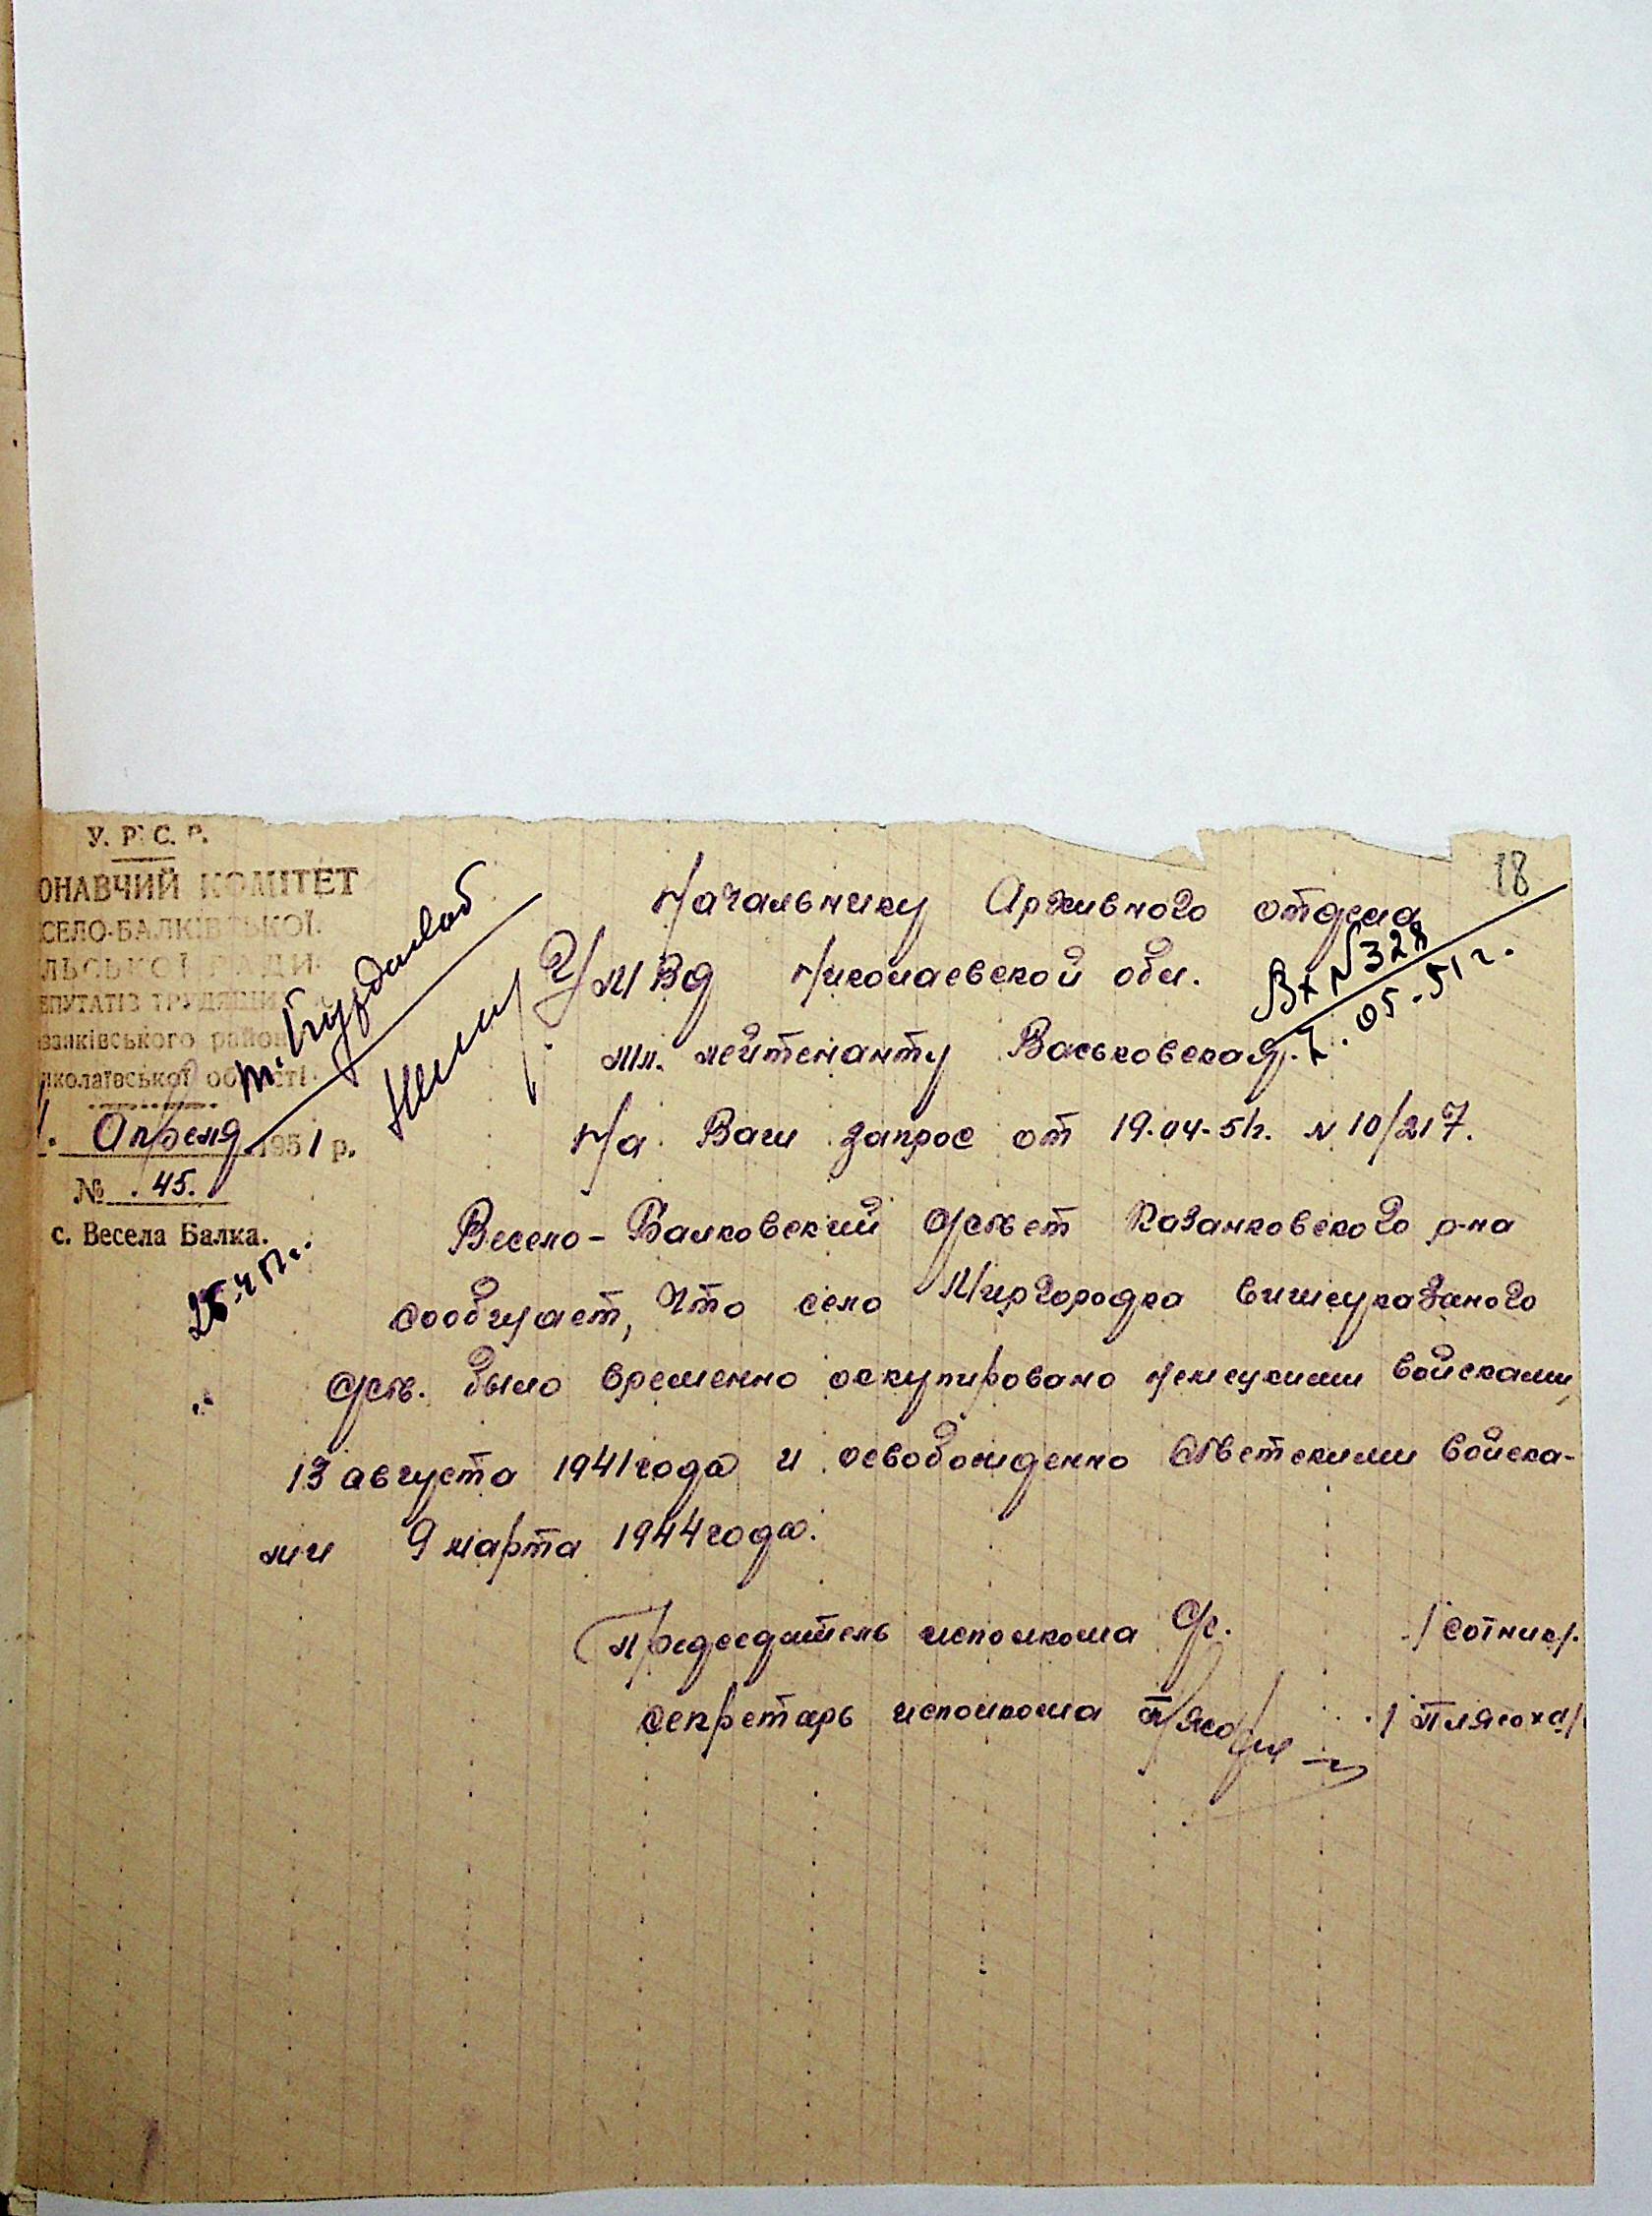 18
У. Р. С. Р.
ОНАВЧИЙ КОМІТЕТ
СЕЛО-БАЛКІВСЬКОЇ
ЛЬСЬКОЇ РАДИ
ЕПУТАТІВ ТРУДЯЩИ
заиківського район
иколаївської області
Апреля 1951 р.
№ 45.
с. Весела Балка.
Начальнику Архивного отдела
УМВД Николаевской обл.
мл. лейтенанту Васьковская.
Вх №328
7.05.51 г.
На Ваш запрос от 19.04-51г. N 10/217.
Весело-Балковский с/совет Казанковского р-на
сообщает, что село Миргородка вишеуказаного
с/сов. было временно оккупировано немецкими войсками
13 августа 1941 года и освобожденно советскими войска-
ми 9 марта 1944 года.
Председатель исполкома С/с. /Сотник/.
секретарь исполкома /Плясоха/